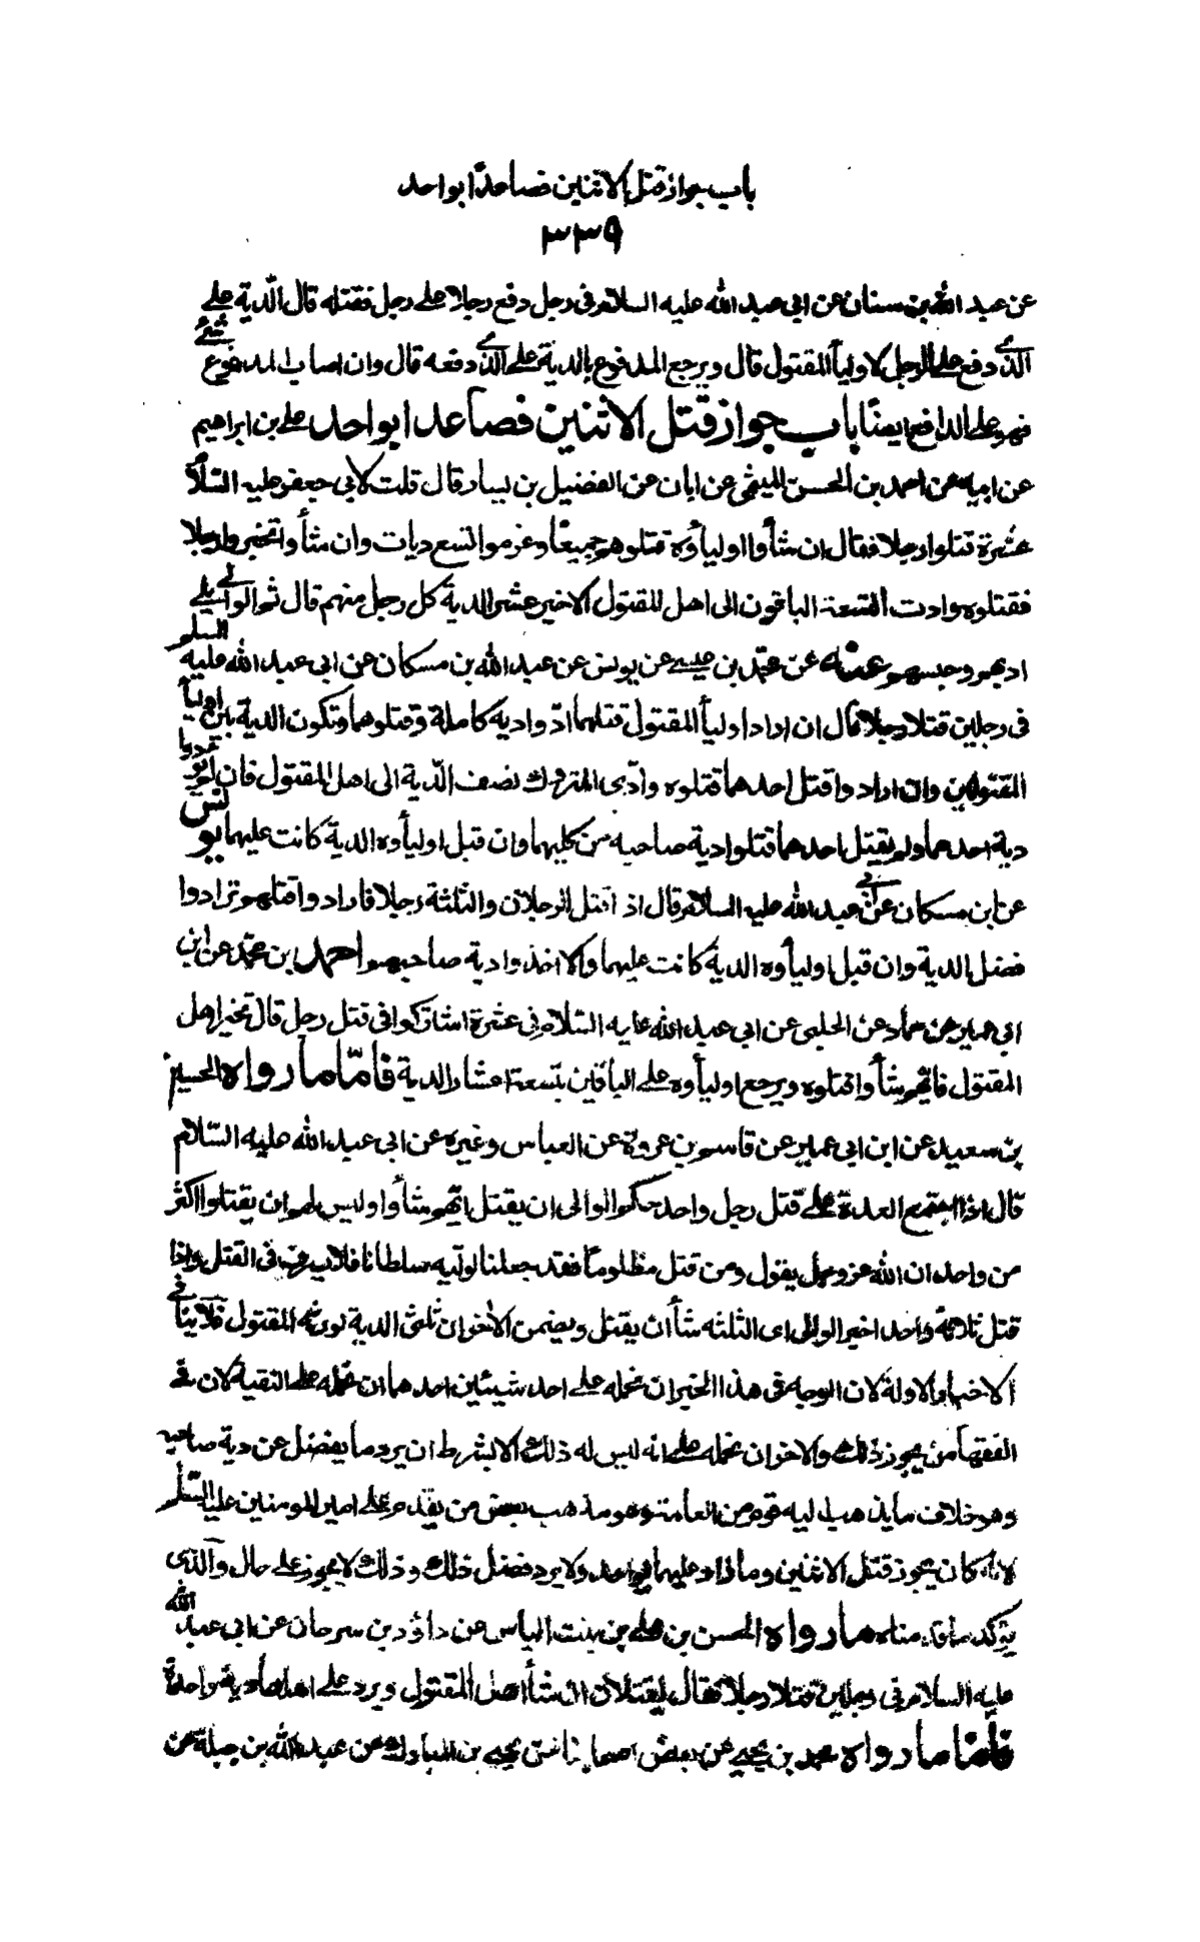 باب جواز قتل الاثنين فصاعدًا بواحد
٣٣٩
عن عبد الله بن سنان عن ابي عبد الله عليه السلام في رجل دفع رجلا على رجل فقتله قال الدّية على
الذي دفع على الرجل لاوليأ المقتول قال ويرجع المدفوع بالدية على الذي دفعه قال وان اصاب المدفوع شئ
فهو على الدافع ايضًا باب جواز قتل الاثنين فصاعدا بواحد على بن ابراهيم
عن ابيه عن احمد بن الحسن الميثمى عن ابان عن الفضيل بن يسار قال قلت لابي جعفر عليه السّلام
عشرة قتلوا رجلا فقال ان شأوا اوليأوه قتلوهم جميعًا وغرموا تسع ديات وان شأوا تخيروا رجلا
فقتلوه وادت التسعة الباقون الى اهل المقتول الاخير عشر الدية كل رجل منهم قال ثم الوالى يلى
ادبهم وحبسهم عنه عن محمّد بن عيسى عن يونس عن عبد الله بن مسكان عن ابي عبد الله عليه السلم
فى رجلين قتلا رجلا قال ان اراد اوليأ المقتول قتلهما ادّوا دية كاملة وقتلوهما وتكون الدية بين اوليأ
المقتولين وان ارادوا قتل احدهما فقتلوه وادّى المتروك نصف الدّية الى اهل المقتول فان لم يؤدوا
دية احدهما ولم يقتل احدهما قتلوا دية صاحبه من كليهما وان قبل اوليأوه الدية كانت عليهما يونس
عن ابن مسكان عن ابي عبد الله عليه السلام قال اذا قتل الرجلان والثلثة رجلا فارادوا قتلهم ترادوا
فضل الدية وان قبل اوليأوه الدية كانت عليهما والا اخذوا دية صاحبهم احمد بن محمّد عن ابن
ابي عمير عن حماد عن الحلبى عن ابي عبد الله عليه السّلام في عشرة اشتركوا فى قتل رجل قال تخير اهل
المقتول فايّهم شأوا قتلوه ويرجع اوليأوه على الباقين بتسعة اعشار الدية فامّا ما رواه الحسين
بن سعيد عن ابن ابي عمير عن قاسم بن عروة عن العباس وغيره عن ابي عبد الله عليه السّلام
قال اذا اجتمع العدة على قتل رجل واحد حكم الوالى ان يقتل ايّهم شأوا وليس لهم ان يقتلوا اكثر
من واحد ان الله عز وجل يقول ومن قتل مظلومًا فقد جعلنا لوليّه سلطانا فلا يسرف فى القتل واذا
قتل ثلاثة واحد اخير الوالى اى الثلثه شأ ان يقتل ويضمن الاخران ثلثى الدية لورثة المقتول فلا ينافى
الاخبار الاولة لان الوجه في هذا الخبر ان نحمله على احد شيئين احدهما ان نحمله على التقية لان فى
الفقهأ من يجوز ذلك والاخر ان نحمله على انه ليس له ذلك الا بشرط ان يرد ما يفضل عن دية صاحبه
وهو خلاف ما يذهب اليه قوم من العامة وهو مذهب بعض من تقدم على امير المومنين عليه السّلم
لانه كان يجوز قتل الاثنين وما زاد عليهما بواحد ولا يرد فضل ذلك وذلك لا يجوز على حال والّذى
يؤكد ما قدمناه ما رواه الحسن بن على بن بنت الياس عن داؤد بن سرحان عن ابي عبد الله
عليه السلام في رجلين قتلا رجلا فقال يقتلان ان شأ اهل المقتول ويرد على اهلهما دية واحدة
فاما ما رواه محمد بن يحيى عن بعض اصحابنا عن يحيى بن المبارك عن عبد الله بن جبلة عن